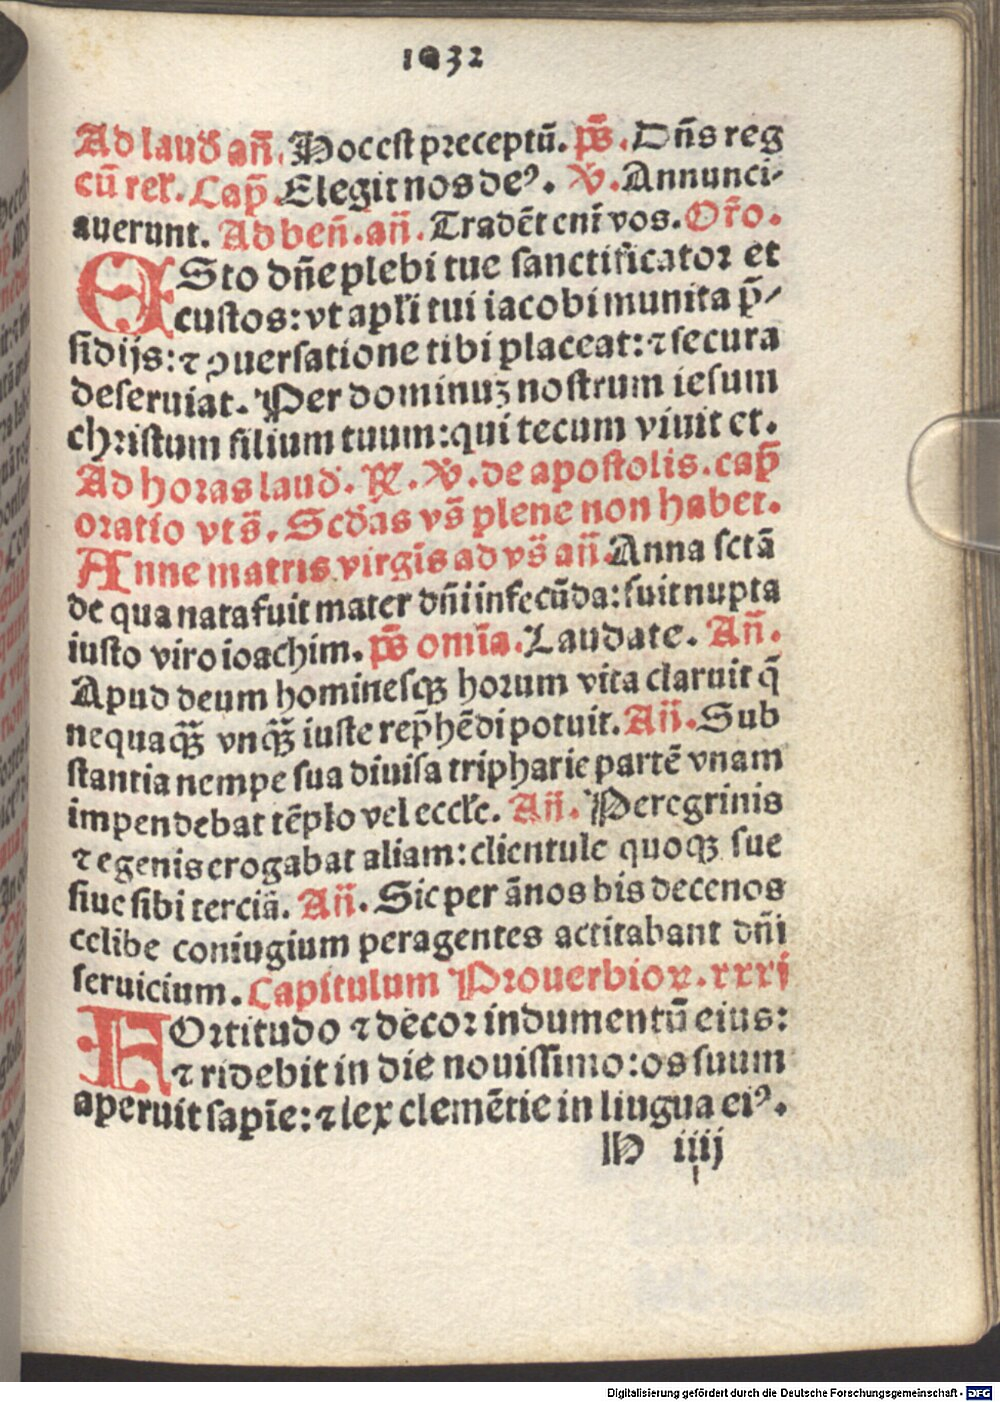 1032
Ad laud̉ an̄. Hoc est preceptū. ps̄. Dn̄s reg
cū rel̛. Cap̄. Elegit nos deꝰ. v̛. Annunci-
auerunt. Ad ben̄. an̄. Tradēt eni̅ vos. Or̄o.
ESto dn̄e plebi tue sanctificator et
custos: vt apl̛i tui iacobi munita p̄-
sidijs: ⁊ ꝯuersatione tibi placeat: ⁊ secura
deseruiat. Per dominuꝫ nostrum iesum
christum filium tuum: qui tecum viuit et.
Ad horas laud̉. R̛. v̛. de apostolis. cap̄
oratio vts̄. Scd̉as vs̄ plene non habet.
Anne matris virgīs ad vs̄ an̄. Anna sctā
de qua nata fuit mater dn̄i infecūda: fuit nupta
iusto viro ioachim. ps̄ omīa. Laudate. An̄.
Apud deum hominesqꝫ horum vita claruit q̄
nequaq̄ꝫ vnq̄ꝫ iuste rep̄hēdi potuit. An̄. Sub
stantia nempe sua diuisa tripharie partē vnam
impendebat tēplo vel eccl̛e. An̄. Peregrinis
⁊ egenis erogabat aliam: clientule quoqꝫ sue
siue sibi terciā. An̄. Sic per ānos bis decenos
celibe coniugium peragentes actitabant dn̄i
seruicium. Capitulum Prouerbioꝝ. xxxj
FOrtitudo ⁊ decor indumentū eius:
⁊ ridebit in die nouissimo: os suum
aperuit sapīe: ⁊ lex clemētie in lingua eiꝰ.
lh iiij
Digitalisierung gefördert durch die Deutsche Forschungsgemeinschaft - DFG